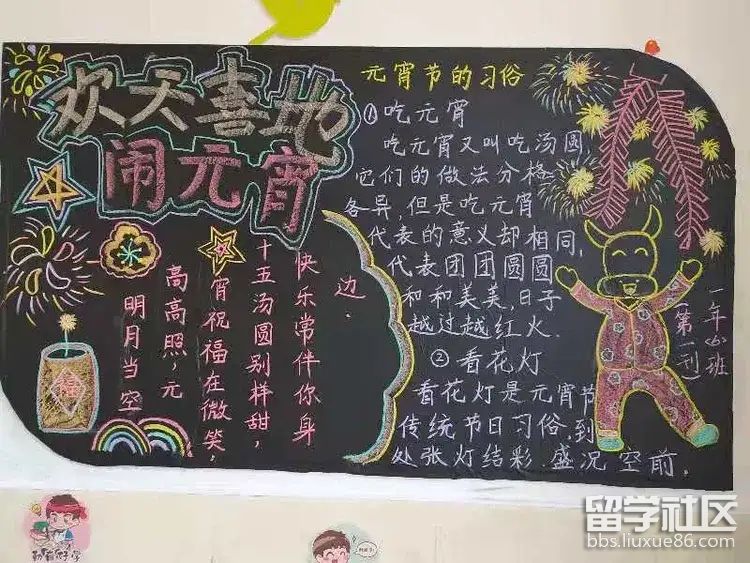 欢天喜地
闹元宵
明月当空
高高照,元
宵祝福在微笑,
十五汤圆别样甜,
快乐常伴你身
边.
元宵节的习俗
①吃元宵
吃元宵又叫吃汤圆,
它们的做法分格
各异,但是吃元宵
代表的意义却相同,
代表团团圆圆
和和美美,日子
越过越红火.
②看花灯
看花灯是元宵节
传统节日习俗,到
处张灯结彩 盛况空前.
一年
班
(第一刊)
福
留学社区
bbs.liuxue86.com